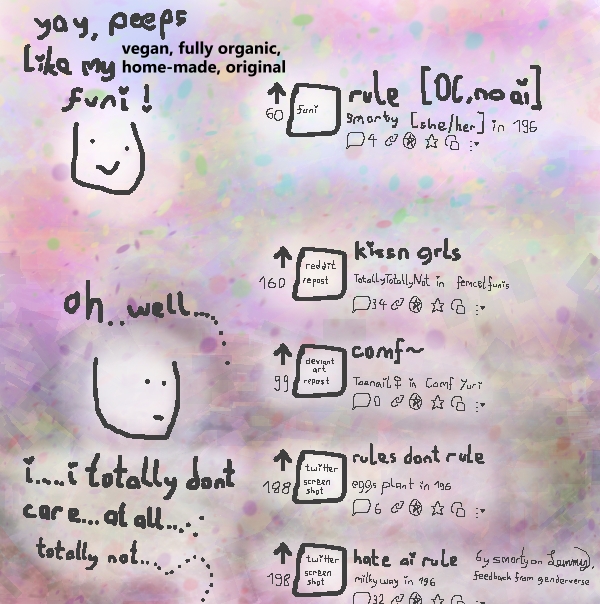 yay, peeps
like my vegan, fully organic,
home-made, original
funi !
60
funi
rule [OC, no ai]
smorty [she/her] in 196
4
kissn grls
160
reddit
repost
TotallyTotallyNot in femcelfunis
34
oh..well....
comf~
99
deviant
art
repost
Toenail♀ in Comf Yuri
0
i....i totally dont
care...at all....
totally not...
rules dont rule
188
twitter
screen
shot
eggs plant in 196
6
hate ai rule
198
twitter
screen
shot
milky way in 196
32
by smorty on Lemmy,
feedback from genderverse